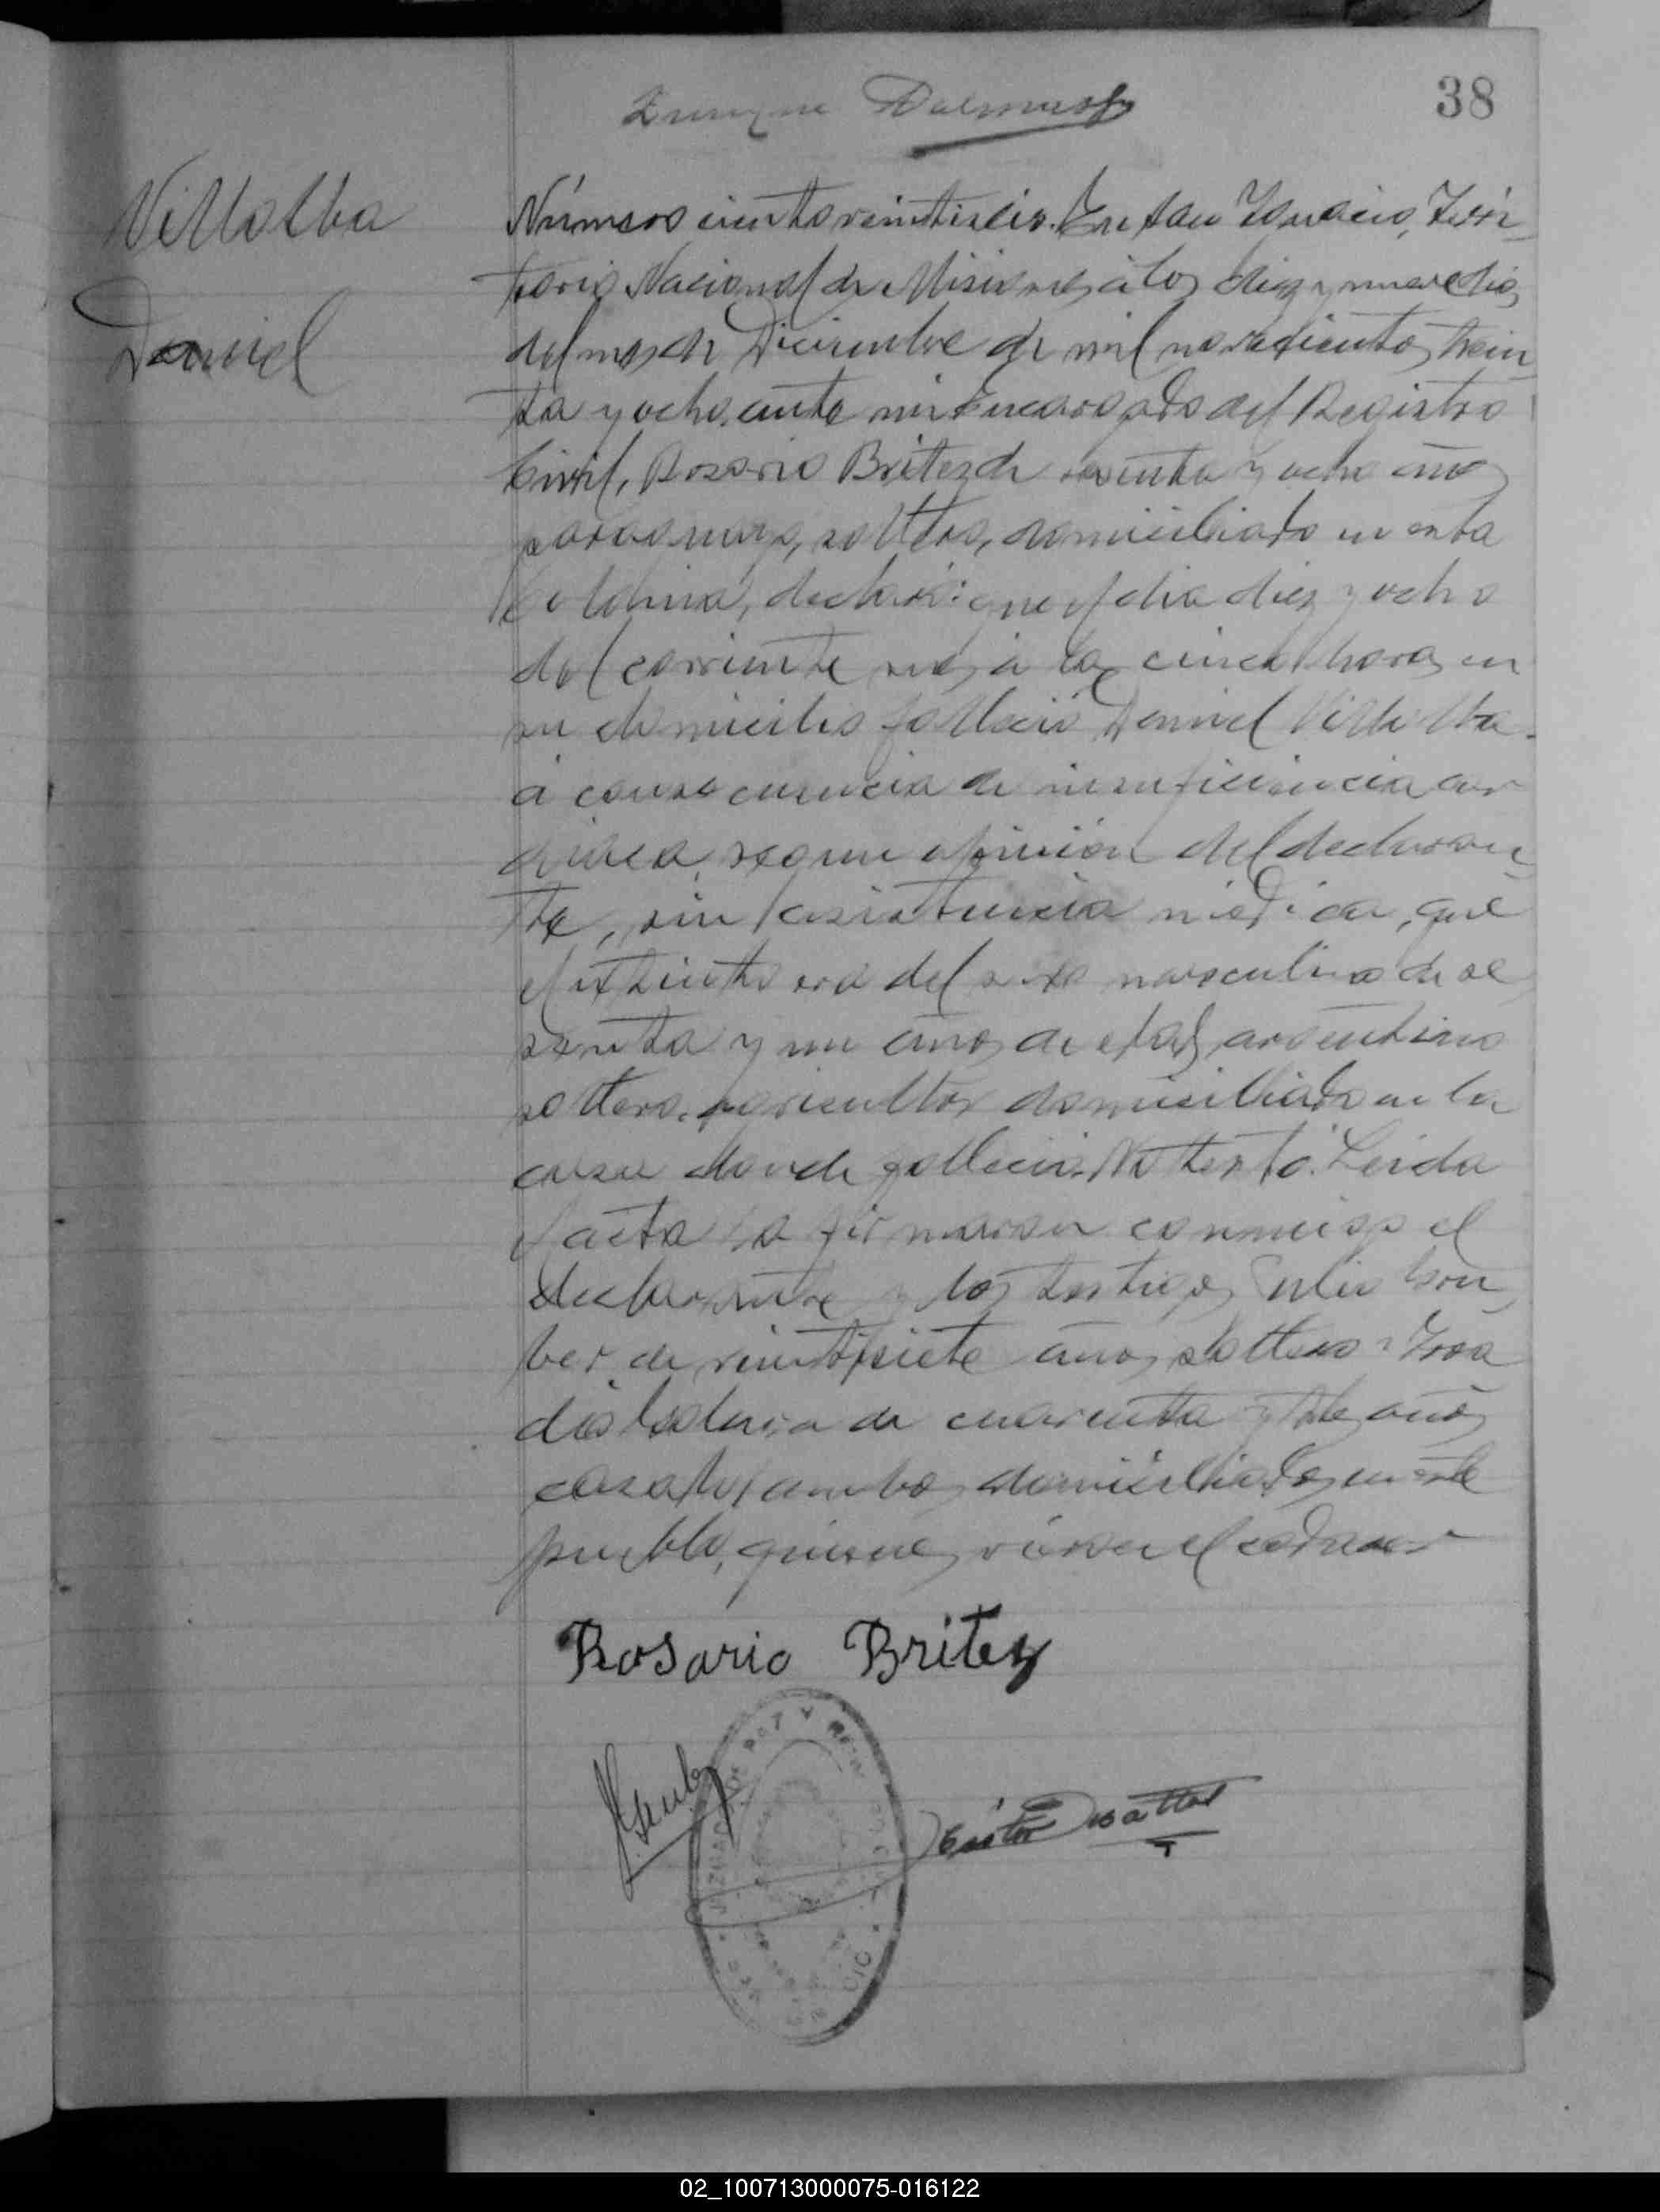 38
Enrique Dalmasso
Villalba
Daniel
Número ciento veintiseis. En San Ignacio, Terri-
torio Nacional de Misiones, á los diez y nueve dias
del mes de Diciembre de mil novecientos trein
ta y ocho, ante mi Encargado del Registro
Civil, Rosario Britez de sesenta y ocho años
paraguayo, soltero, domiciliado en esta
Colonia, declaró: que el dia diez y ocho
del corriente mes á las cinco horas en
su domicilio falleció Daniel Villalba
á consecuencia de insuficiencia car
diaca, segun opinión del declaran
te, sin asistencia médica, que
el extinto era del sexo masculino de se
senta y un años de edad, argentino
soltero, agricultor domiciliado en la
casa donde falleció. No testó. Leida
el acta la firmaron conmigo el
declarante y los testigos Julio
de veintisiete años, soltero
de cuarenta y años
casado, ambos domiciliados en este
pueblo, quienes vieron el cadaver
Rosario Britez
JUZGADO DE PAZ Y